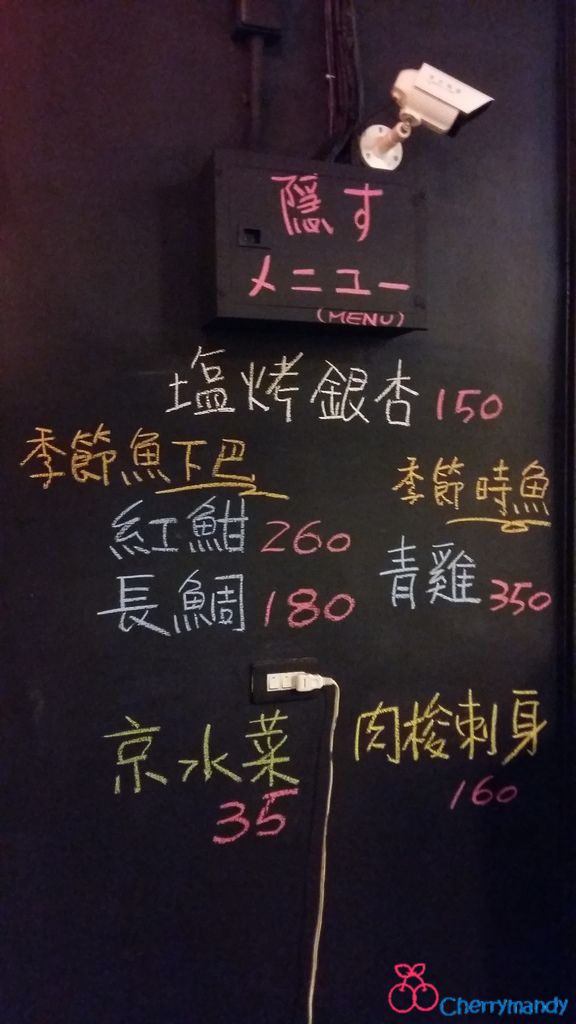 隠す
メニュー
(MENU)
塩烤銀杏 150
季節魚下巴
紅魽 260
長鯛 180
季節時魚
青雞 350
京水菜
35
肉梭刺身
160
Cherrymandy